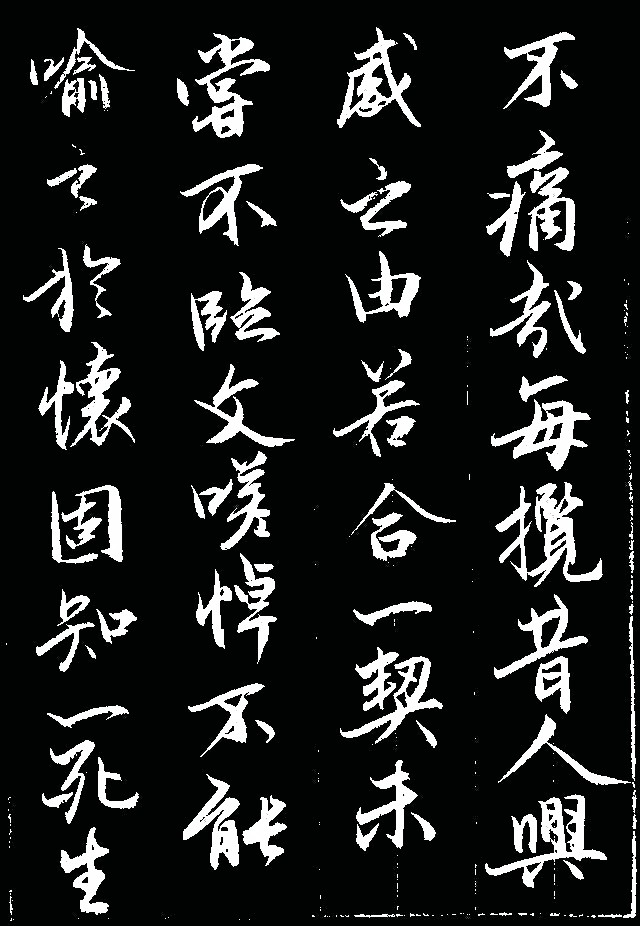 不痛哉每攬昔人興
感之由若合一契未
嘗不臨文嗟悼不能
喻之於懷固知一死生